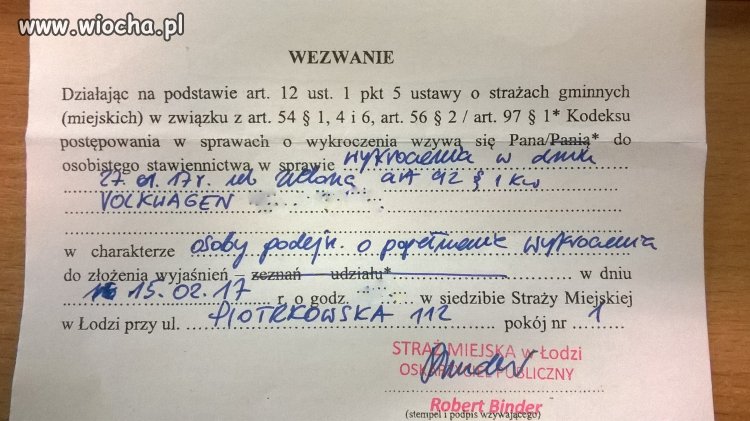 www.wiocha.pl
WEZWANIE
Działając na podstawie art. 12 ust. 1 pkt 5 ustawy o strażach gminnych
(miejskich) w związku z art. 54 § 1, 4 i 6, art. 56 § 2 / art. 97 § 1* Kodeksu
postępowania w sprawach o wykroczenia wzywa się Pana/Panią* do
osobistego stawiennictwa w sprawie wykroczenia w dniu
27.01.17r. ul. Zielona art 92 § 1 kw
VOLKWAGEN
w charakterze osoby podejn. o popełnienie wykroczenia
do złożenia wyjaśnień – zeznań – udziału* w dniu
15.02.17 r. o godz. w siedzibie Straży Miejskiej
w Łodzi przy ul. PIOTRKOWSKA 112 pokój nr 1
STRAŻ MIEJSKA w Łodzi
OSKARŻYCIEL PUBLICZNY
Robert Binder
(stempel i podpis wzywającego)